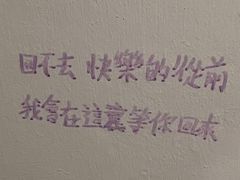 回不去 快樂的從前
我會在這裏等你回來